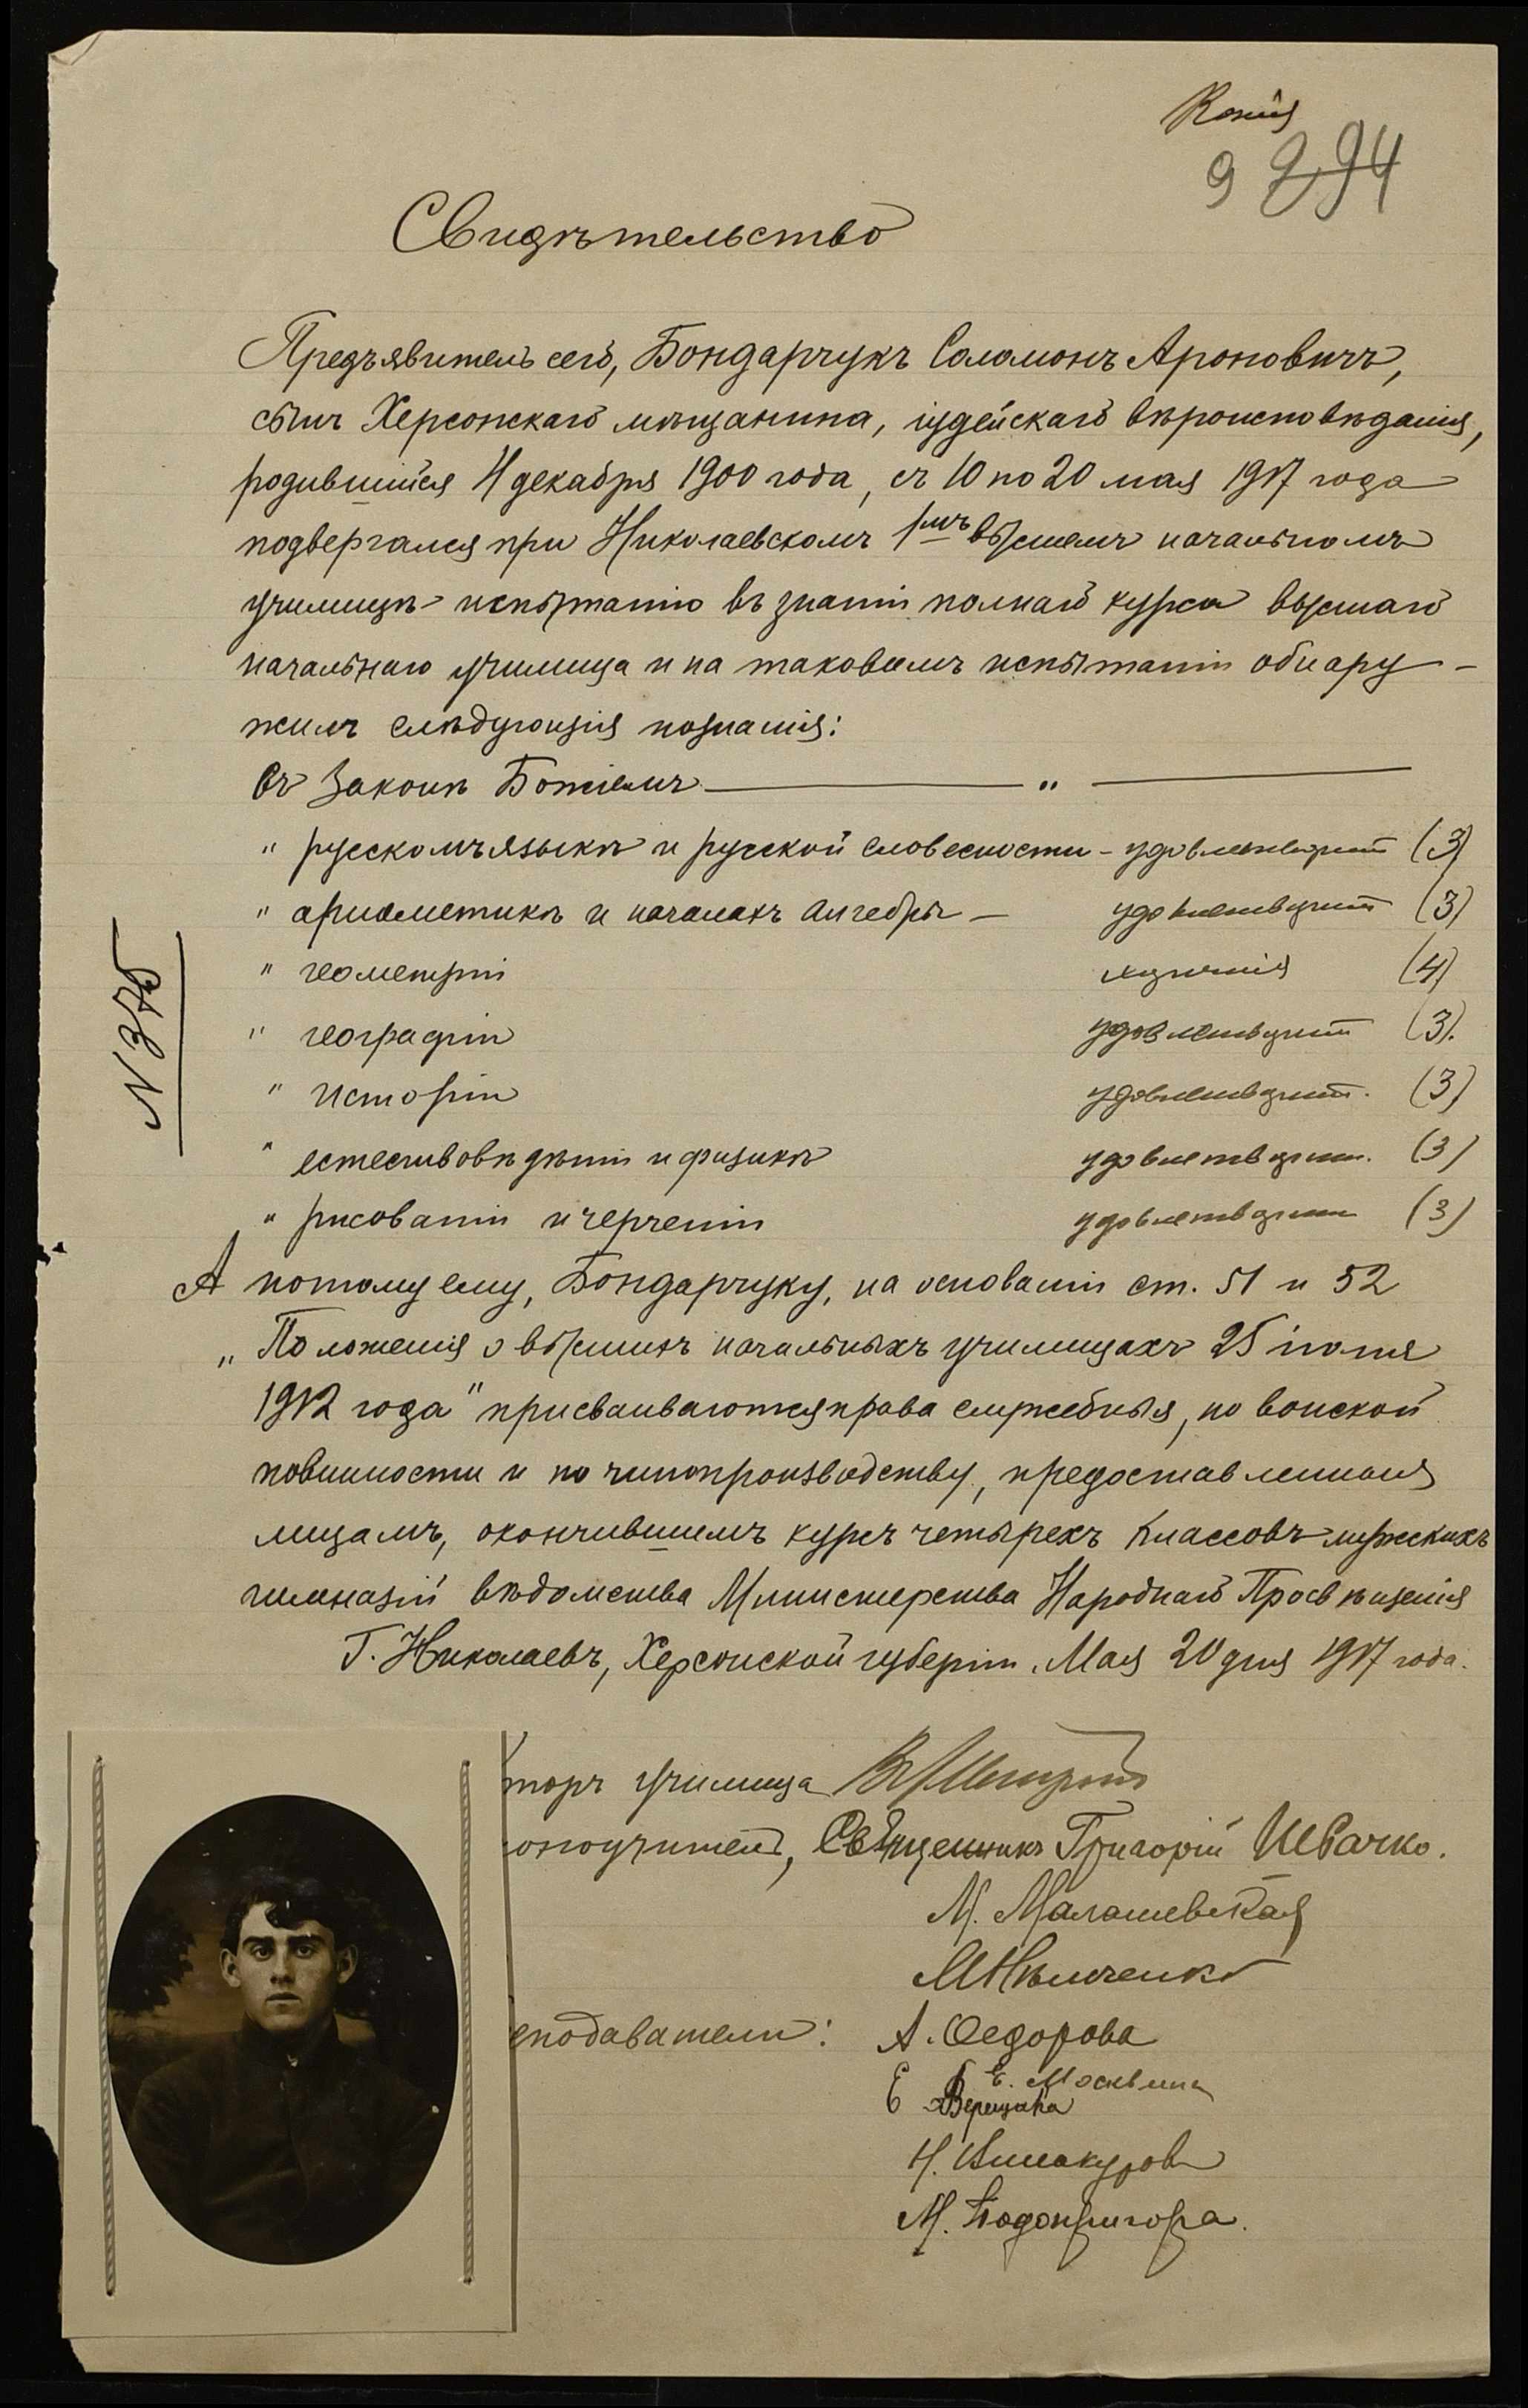 Копія
9 294
Свидѣтельство
Предъявитель сего, Бондарчукъ Соломонъ Ароновичъ,
сынъ Херсонскаго мѣщанина, іудейскаго вѣроисповѣданія,
родившійся 4 декабря 1900 года, съ 10 по 20 мая 1917 года
подвергался при Николаевскомъ 1мъ высшемъ начальномъ
училищѣ испытанію въ знаніи полнаго курса высшаго
начальнаго училища и на таковомъ испытаніи обнару-
жилъ слѣдующія познанія:
Въ Законѣ Божіемъ — " —
" русскомъ языкѣ и русской словесности - удовлетворит (3)
" ариѳметикѣ и началахъ алгебры — удовлетворит (3)
" геометріи (4)
" географіи удовлетворит (3).
" исторіи удовлетворит. (3)
" естествовѣдѣніи и физикѣ удовлетворит. (3)
" рисованіи и черченіи удовлетворит (3)
N 375
А потому ему, Бондарчуку, на основаніи ст. 51 и 52
„Положенія о высшихъ начальныхъ училищахъ 25 іюня
1912 года" присваиваются права служебныя, по воинской
повинности и по чинопроизводству, предоставленныя
лицамъ, окончившимъ курсъ четырехъ классовъ мужскихъ
гимназій вѣдомства Министерства Народнаго Просвѣщенія
Г. Николаевъ, Херсонской губерніи. Мая 20 дня 1917 года.
торъ училища
оноучитель, Священникъ Григорій Швачко.
М. Малашевская
еподаватели: А. Ѳедорова
Е. Москвина
Е Верещака
Н. Винокурова
М. Подопригора.